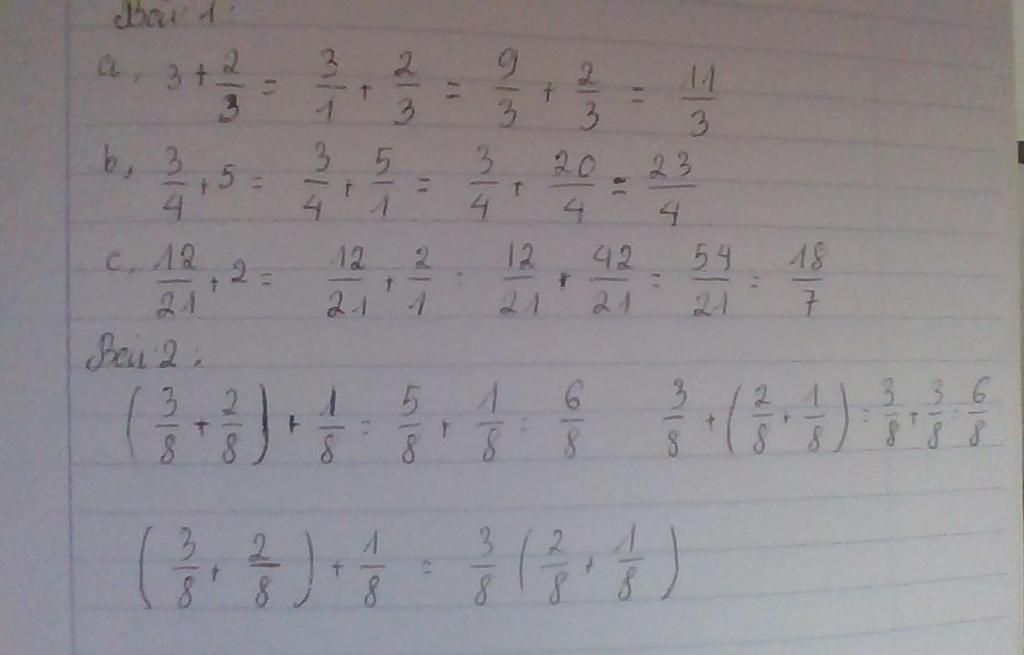 Bài 1:
a, 3 + 2/3 = 3/1 + 2/3 = 9/3 + 2/3 = 11/3
b, 3/4 + 5 = 3/4 + 5/1 = 3/4 + 20/4 = 23/4
c, 12/21 + 2 = 12/21 + 2/1 = 12/21 + 42/21 = 54/21 = 18/7
Bài 2:
(3/8 + 2/8) + 1/8 = 5/8 + 1/8 = 6/8 3/8 + (2/8 + 1/8) = 3/8 + 3/8 = 6/8
(3/8 + 2/8) + 1/8 = 3/8 (2/8 + 1/8)